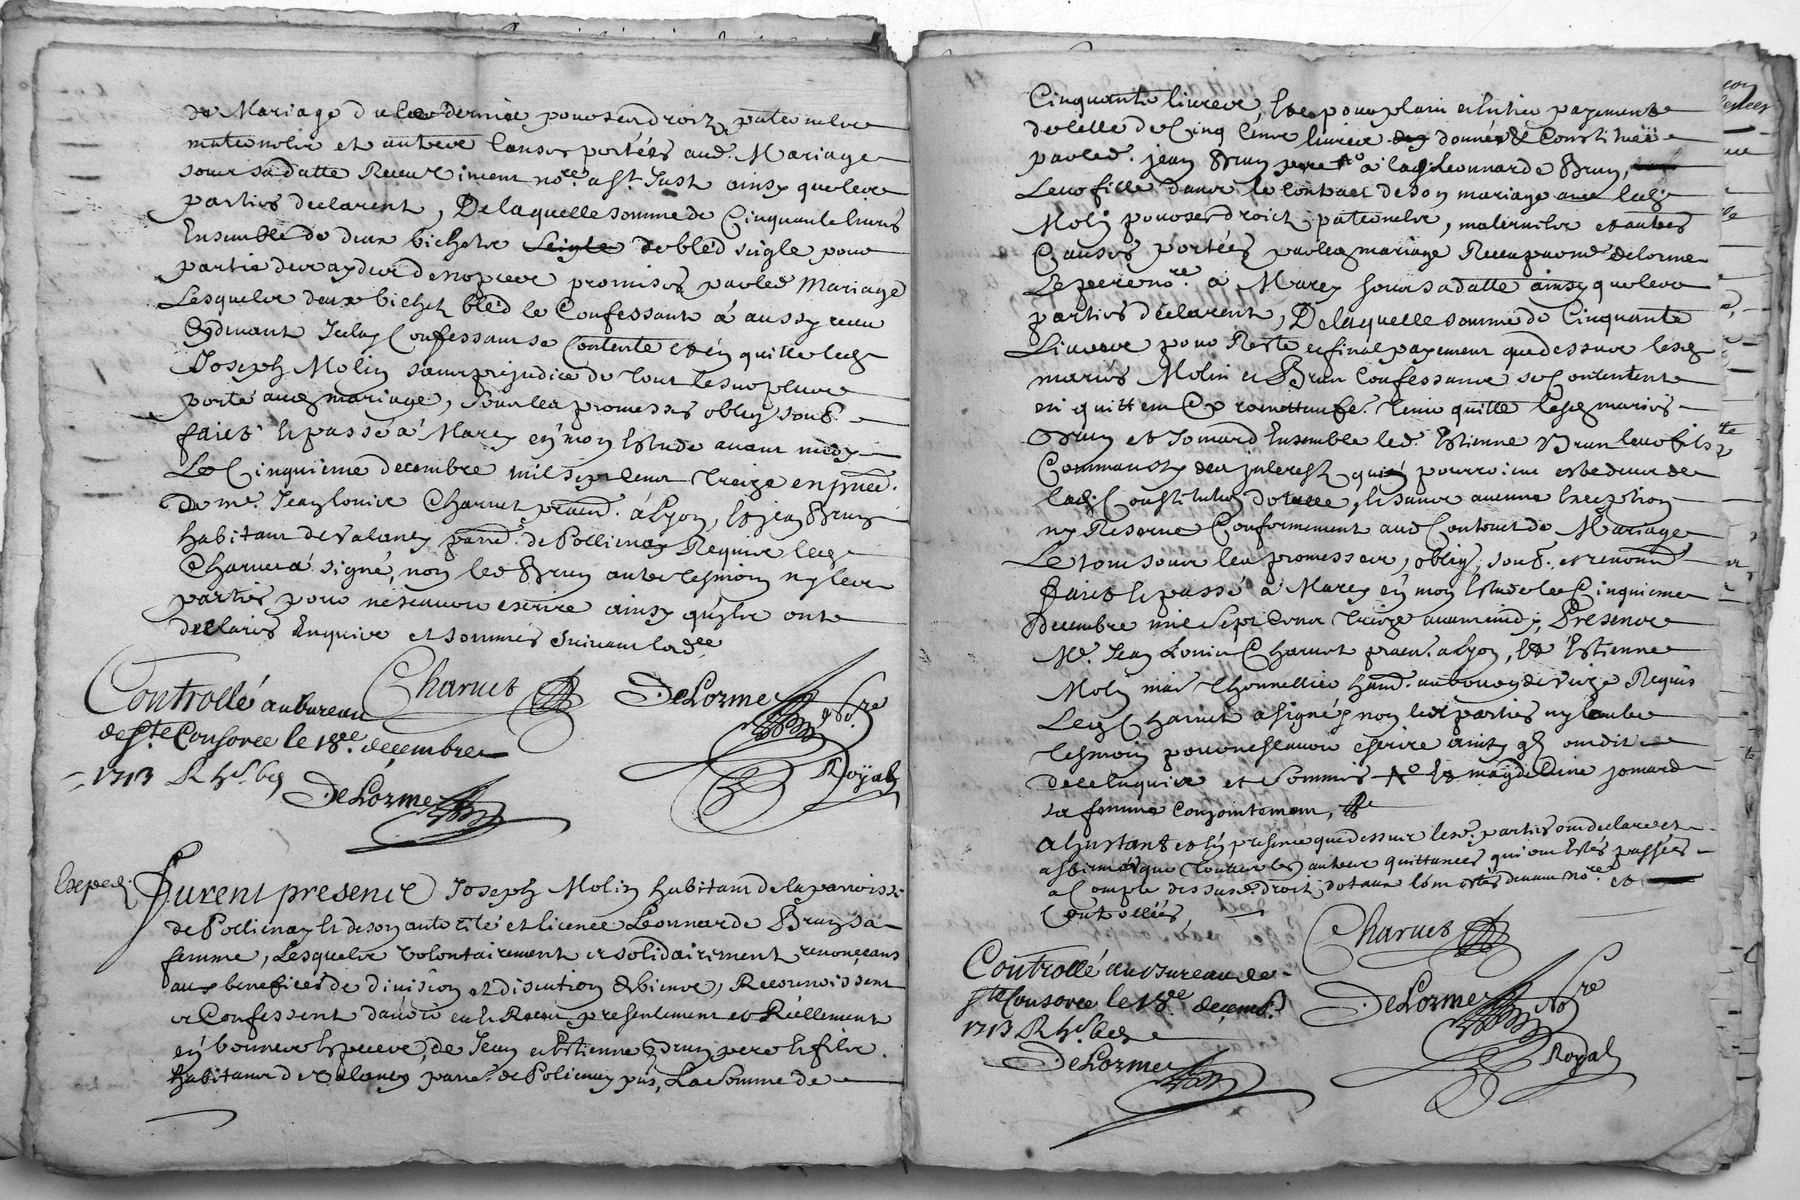 de Mariage de lad derniere pour ses droits paternelz
maternelz et autres causes portées aud. Mariage
sous sa datte Receu nore. a St. Just ainsy que les
parties declarent, De laquelle somme de Cinquante livres
Ensemble de deux bichetz Seigle de bled seigle pour
partie des promises par led Mariage
Lesquelz deux bichet bled le Confessant a aussy receu
Confessant se Contente et en quitte led
Joseph Molin sans prejudice de tout le surplus
porté aud mariage, Sous les promesses oblig soub.
faict et passé a Marcy en mon Estude avant midy
Le Cinquieme decembre mil sept cent treize en pnce.
De me. Jean Louis Charvet praticn. a Lyon, et jean Brun
habitant de Valoney parre. de Pollienay Requis led
Charvet a signé, non led Brun autre tesmoin ny les
parties pour ne scavoir escrire ainsy qu'ilz ont
declarés Enquis et sommés Suivant lord.ce
Charvet DeLorme No.re
Royal
Controllé au bureau
de Ste Consorce le 18e. decembre
1713 R
DeLorme
Exped.
Furent presents Joseph Molin habitant de la paroisse
de Pollienay et de son autorité et licence Leonnarde Brun sa
femme, Lesquelz volontairement et solidairement renonçeans
aux benefices de division et discution de biens, Reconnoissent
et Confessent d'avoir eu et Receu presentement et Réellement
en bonnes Especes, de Jean et Estienne Brun pere et filz
habitans de Valoney parre. de Polienay pns, La Somme de
Cinquante livres, Et ce pour plain et Entier payement
de celle de Cinq cens livres donnée & Constituée
par led. jean Brun pere a lad Leonnarde Brun,
Leur fille dans le Contract de son mariage avec led
Molin pour ses droict paternelz, maternelz et autres
Causes portées par led mariage Receu par me delorme
Le pere nore. a Marcy sous sa datte ainsy que les
parties déclarent, De laquelle somme de Cinquante
Livres pour Reste et final payement que dessus lesd
mariés Molin et Brun Confessans se Contentent
en quittent & promettent fe. tenir quitte lesd mariés
Brun et Jomard Ensemble led. Estienne Brun leur fils
Comme aussy des interestz qui pourroient estre deus de
lad. Constitution dotalle, et sans aucune Exception
ny Reserve Conformement aud Contract de Mariage
Le tout sous les promesses, oblig, soub. et renon
faict et passé a Marcy en mon Estude le Cinquieme
decembre mil Sept Cent treize avant midy, Presence
Me. Jean Louis Charvet praticn. a Lyon, Et Estienne
Molin mar thonnellier hant. au bourg de Requis
Led Charvet a signé, non lesd parties ny l'autre
tesmoin pour ne scavoir escrire ainsy qu'ilz ont dit
de ce Enquis et sommés Et magdelaine jomard
sa femme Conjointement,
a l'instant et en presence que dessus lesd. parties ont declaré et
affirmé que toutes les autres quittances qui ont Estés passées
a Compte desd droit dotaux l'ont estés devant nore. et
Controllées,
Charvet
DeLorme No.re
Royal
Controllé au bureau de
Ste Consorce le 18e decemb.
1713 R
DeLorme